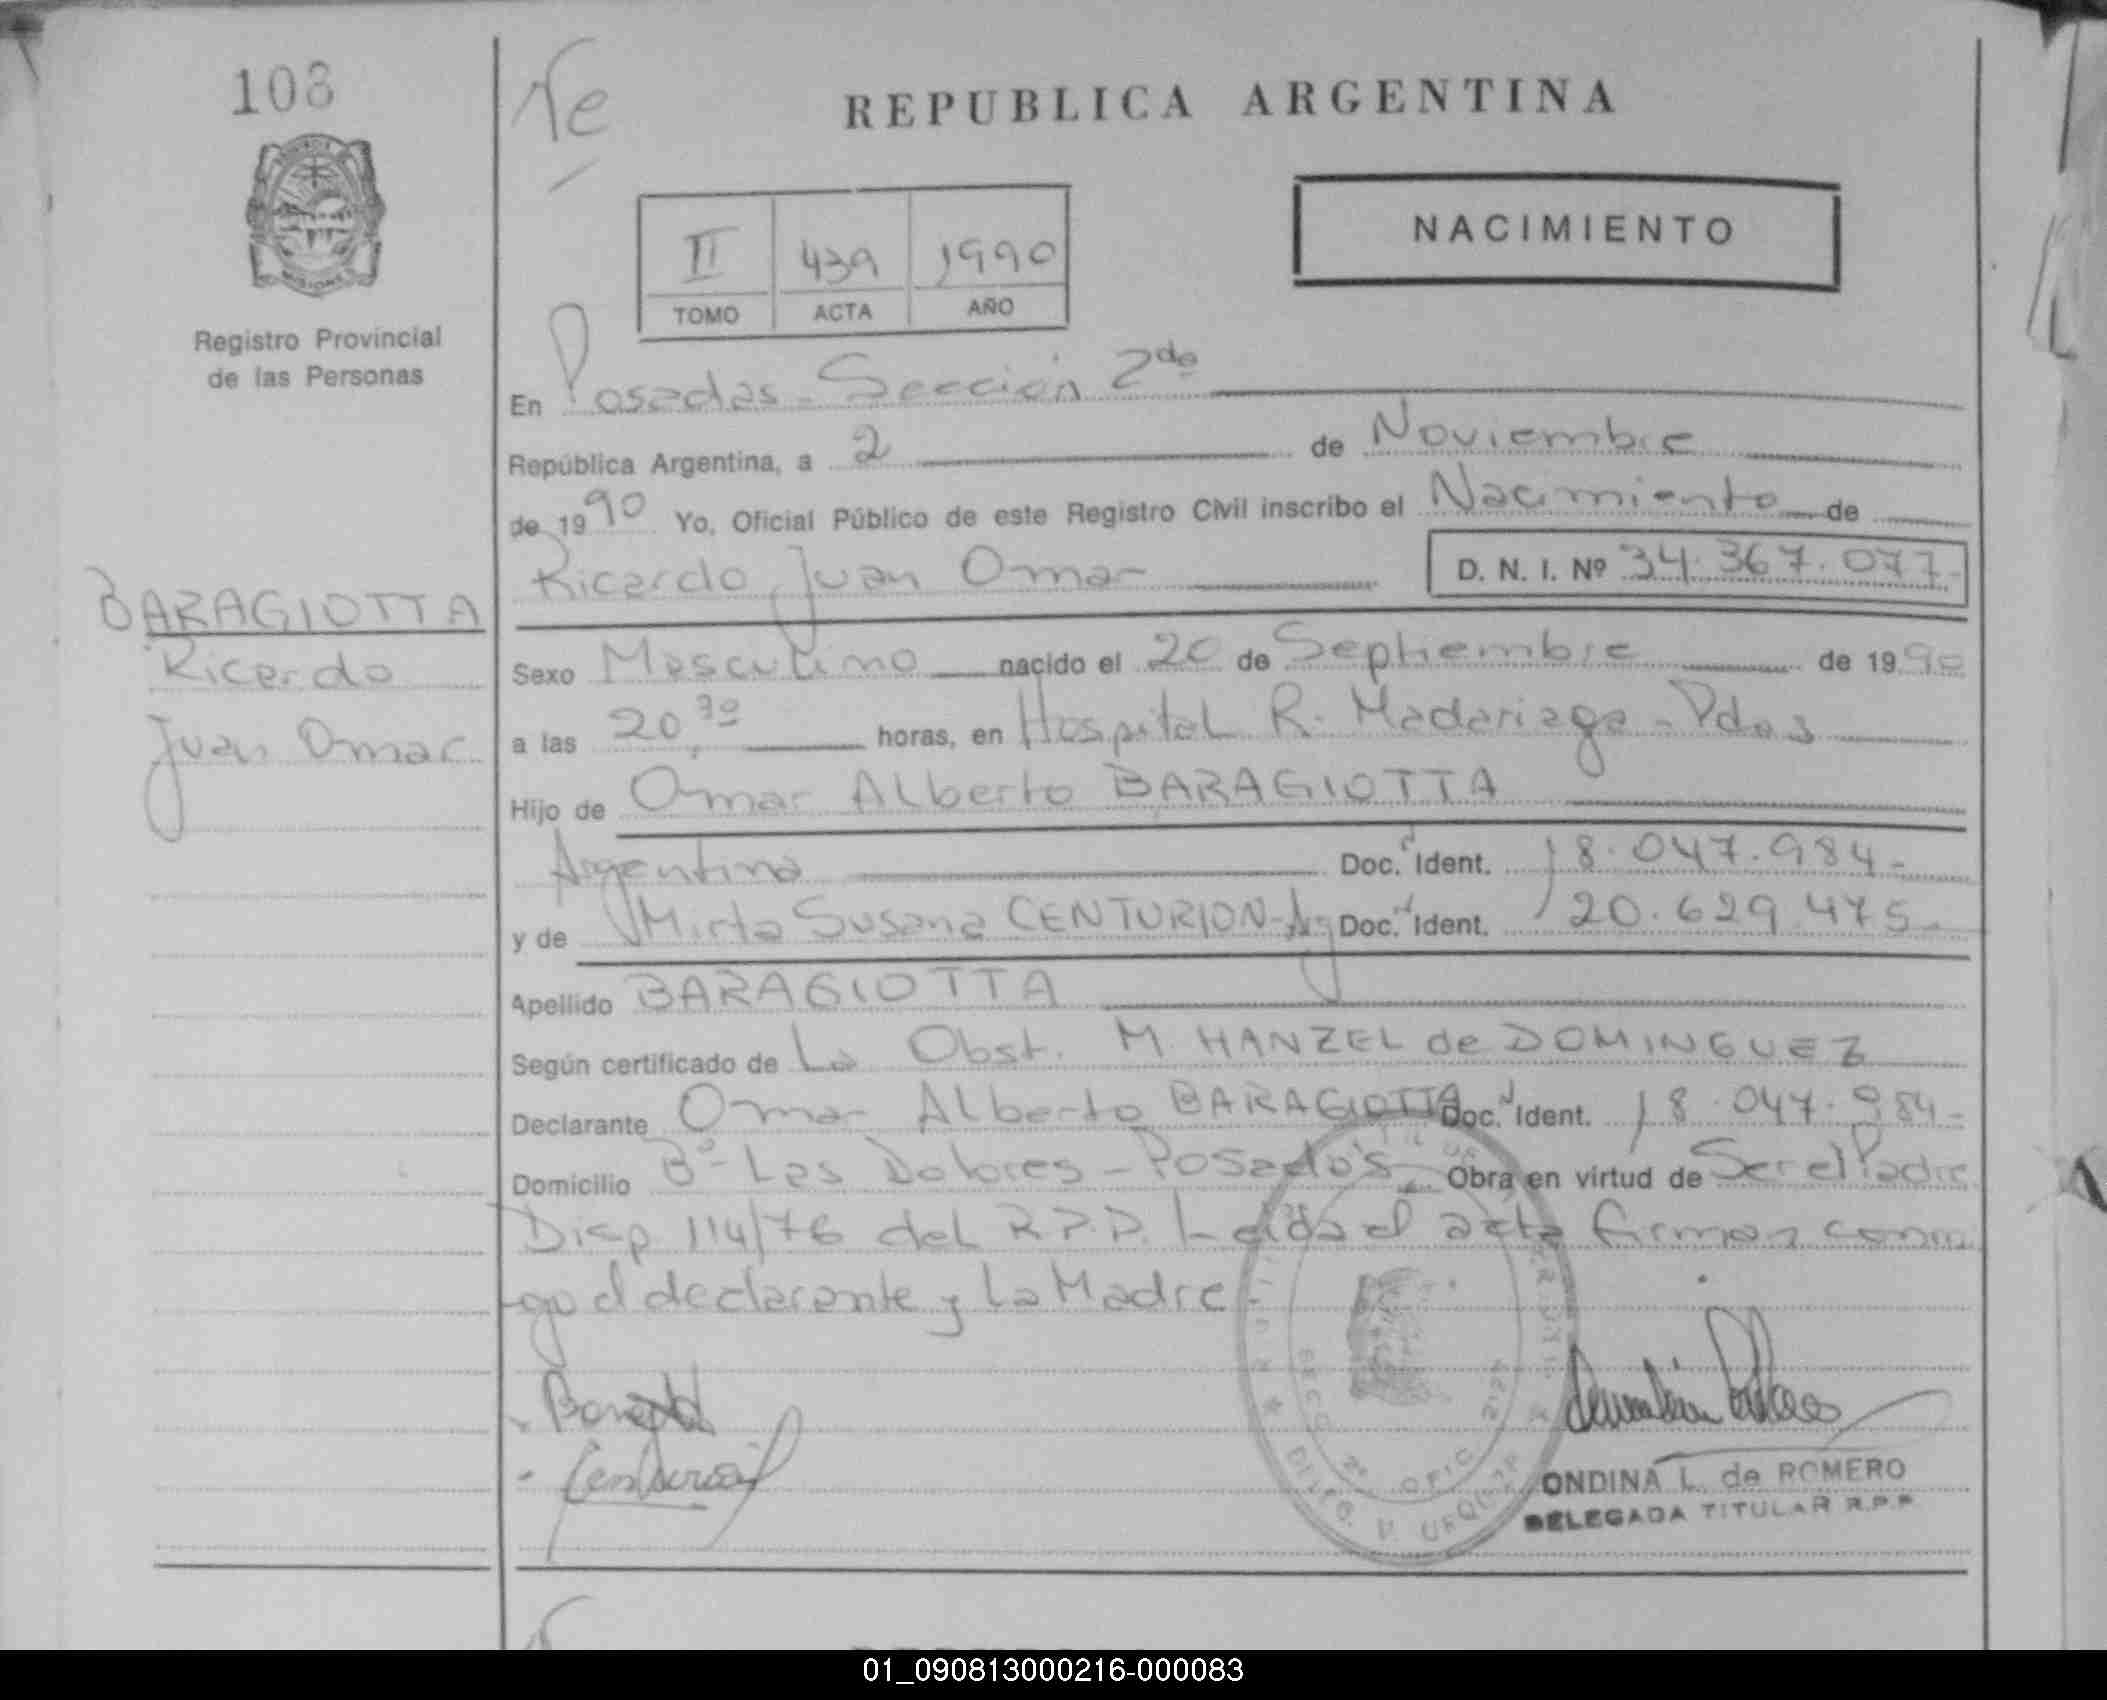 108
Registro Provincial
de las Personas
BARAGIOTTA
Ricardo
Juan Omar
REPUBLICA ARGENTINA
NACIMIENTO
II 439 1990
TOMO ACTA AÑO
En Posadas - Sección 2da
República Argentina, a 2 de Noviembre
de 1990 Yo, Oficial Público de este Registro Civil inscribo el Nacimiento de
Ricardo Juan Omar D. N. I. Nº 34.367.077-
Sexo Masculino nacido el 20 de Septiembre de 1990
a las 20,30 horas, en Hospital R. Madariaga - Pdas
Hijo de Omar Alberto BARAGIOTTA
Argentino Doc. Ident. 18.047.984-
y de Mirta Susana CENTURION - Arg Doc. Ident. 20.629.475-
Apellido BARAGIOTTA
Según certificado de La Obst. M. HANZEL de DOMINGUEZ
Declarante Omar Alberto BARAGIOTTA Doc. Ident. 18.047.984-
Domicilio Bº - Las Dolores - Posadas Obra en virtud de Ser el Padre
Disp 114/76 del R.P.P. Leída el acta firman conmi
go el declarante y La Madre -
Centurion
ONDINA L. de ROMERO
DELEGADA TITULAR R.P.P
SECC. 2ª OFIC. 2124
URQUIZA
01_090813000216-000083